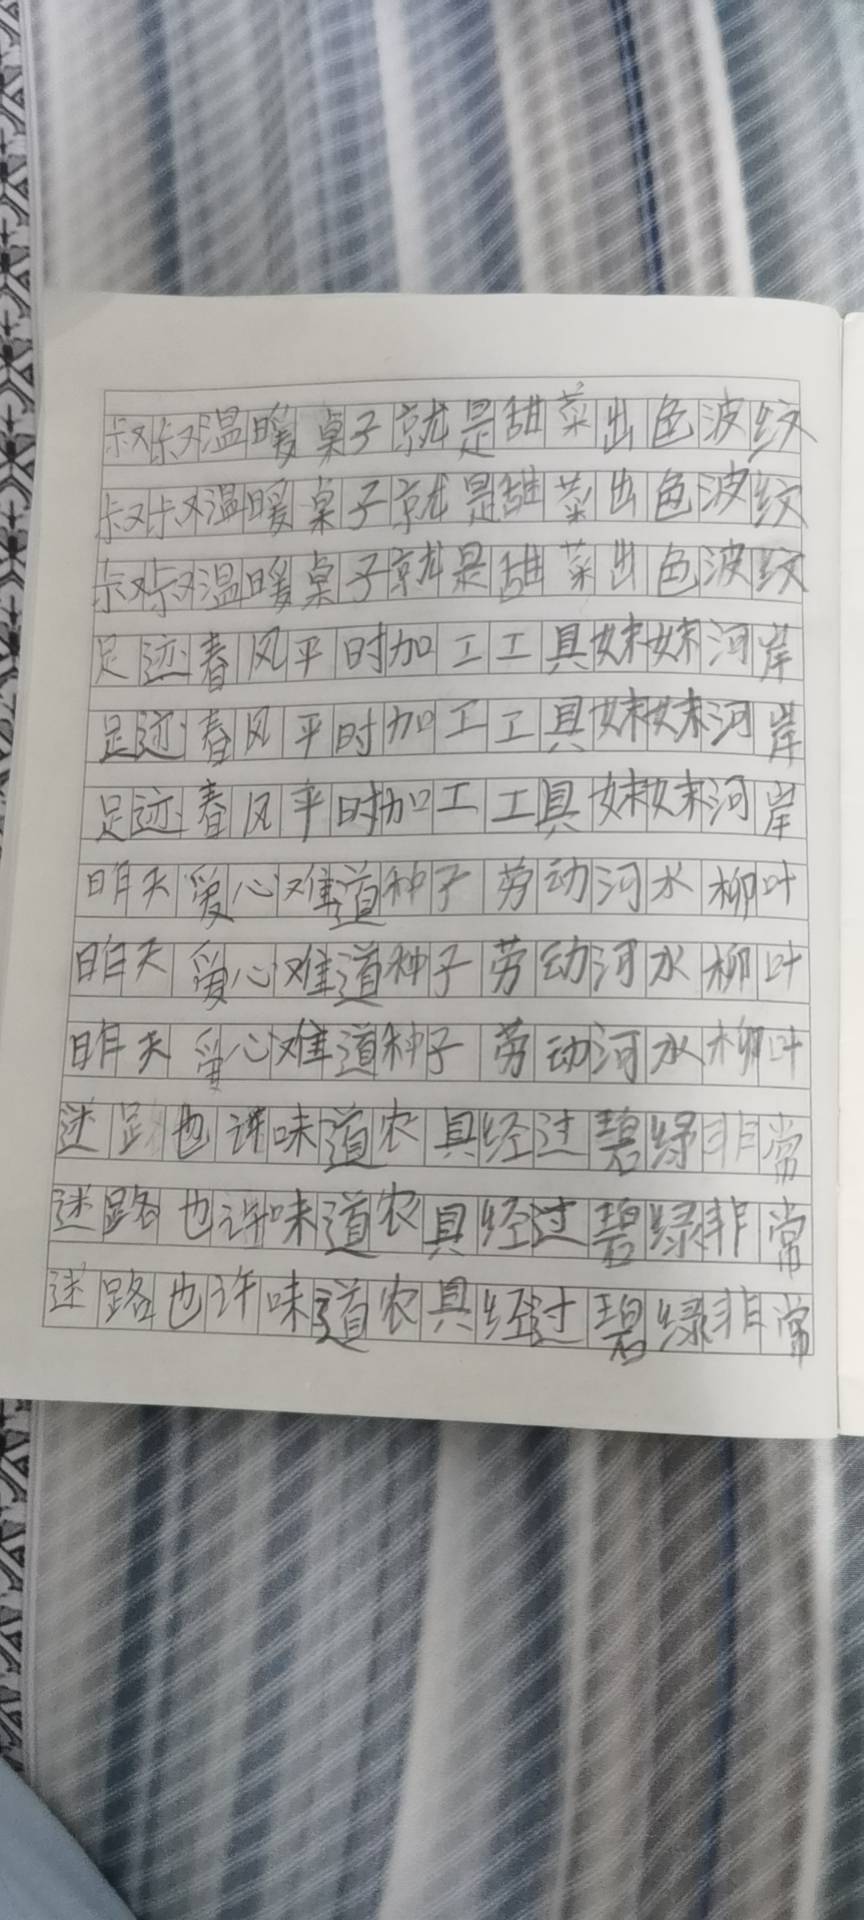 叔叔温暖桌子就是甜菜出色波纹
叔叔温暖桌子就是甜菜出色波纹
叔叔温暖桌子就是甜菜出色波纹
足迹春风平时加工工具妹妹河岸
足迹春风平时加工工具妹妹河岸
足迹春风平时加工工具妹妹河岸
昨天爱心难道种子劳动河水柳叶
昨天爱心难道种子劳动河水柳叶
昨天爱心难道种子劳动河水柳叶
迷路也许味道农具经过碧绿非常
迷路也许味道农具经过碧绿非常
迷路也许味道农具经过碧绿非常